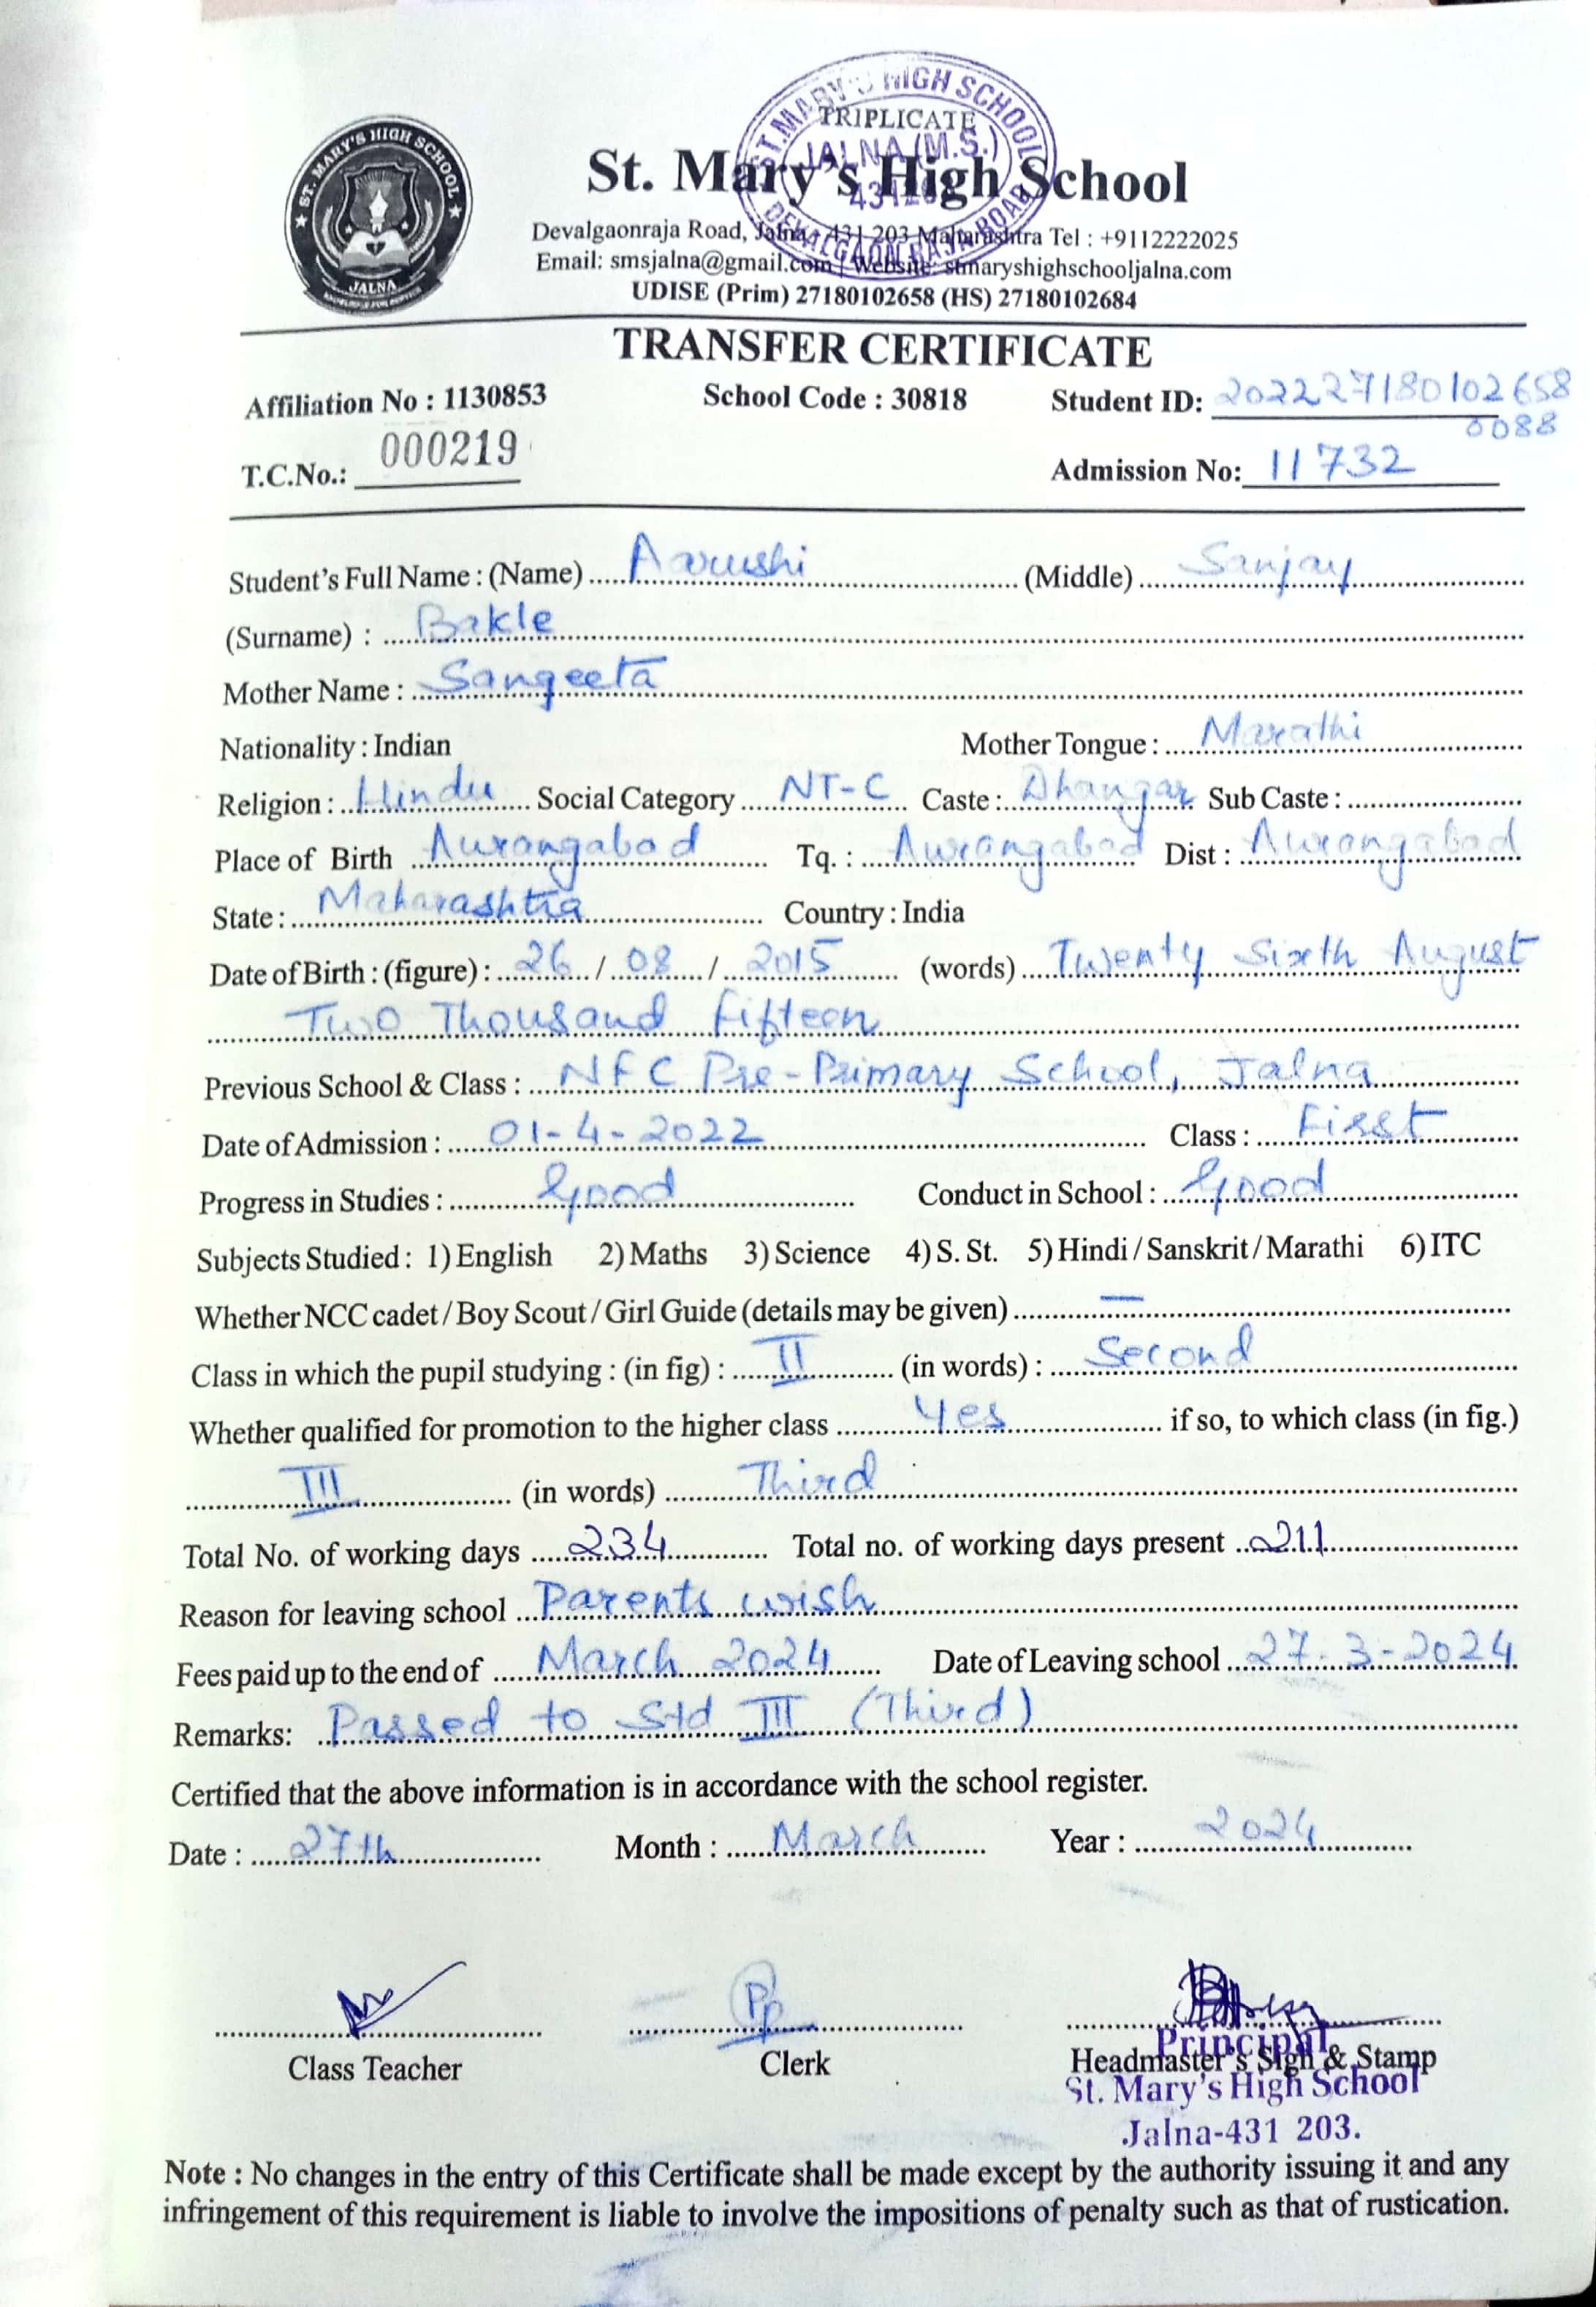 ST. MARY'S HIGH SCHOOL
JALNA
ST. MARY'S HIGH SCHOOL
TRIPLICATE
JALNA (M.S.)
DEVALGAON RAJA ROAD
St. Mary's High School
Devalgaonraja Road, Jalna - 431 203 Maharashtra Tel : +9112222025
Email: smsjalna@gmail.com | Website: stmaryshighschooljalna.com
UDISE (Prim) 27180102658 (HS) 27180102684
TRANSFER CERTIFICATE
Affiliation No : 1130853 School Code : 30818 Student ID: 2022271801026580088
T.C.No.: 000219 Admission No: 11732
Student's Full Name : (Name) Aarushi (Middle) Sanjay
(Surname) : Bakle
Mother Name : Sangeeta
Nationality : Indian Mother Tongue : Marathi
Religion : Hindu Social Category NT-C Caste : Dhangar Sub Caste :
Place of Birth Aurangabad Tq. : Aurangabad Dist : Aurangabad
State : Maharashtra Country : India
Date of Birth : (figure) : 26 / 08 / 2015 (words) Twenty Sixth August
Two Thousand Fifteen
Previous School & Class : NFC Pre-Primary School, Jalna
Date of Admission : 01-4-2022 Class : First
Progress in Studies : Good Conduct in School : Good
Subjects Studied : 1) English 2) Maths 3) Science 4) S. St. 5) Hindi / Sanskrit / Marathi 6) ITC
Whether NCC cadet / Boy Scout / Girl Guide (details may be given) —
Class in which the pupil studying : (in fig) : II (in words) : Second
Whether qualified for promotion to the higher class Yes if so, to which class (in fig.)
III (in words) Third
Total No. of working days 234 Total no. of working days present 211
Reason for leaving school Parents wish
Fees paid up to the end of March 2024 Date of Leaving school 27-3-2024
Remarks: Passed to Std III (Third)
Certified that the above information is in accordance with the school register.
Date : 27th Month : March Year : 2024
Class Teacher Clerk Headmaster's Sign & Stamp
Principal
St. Mary's High School
Jalna-431 203.
Note : No changes in the entry of this Certificate shall be made except by the authority issuing it and any
infringement of this requirement is liable to involve the impositions of penalty such as that of rustication.